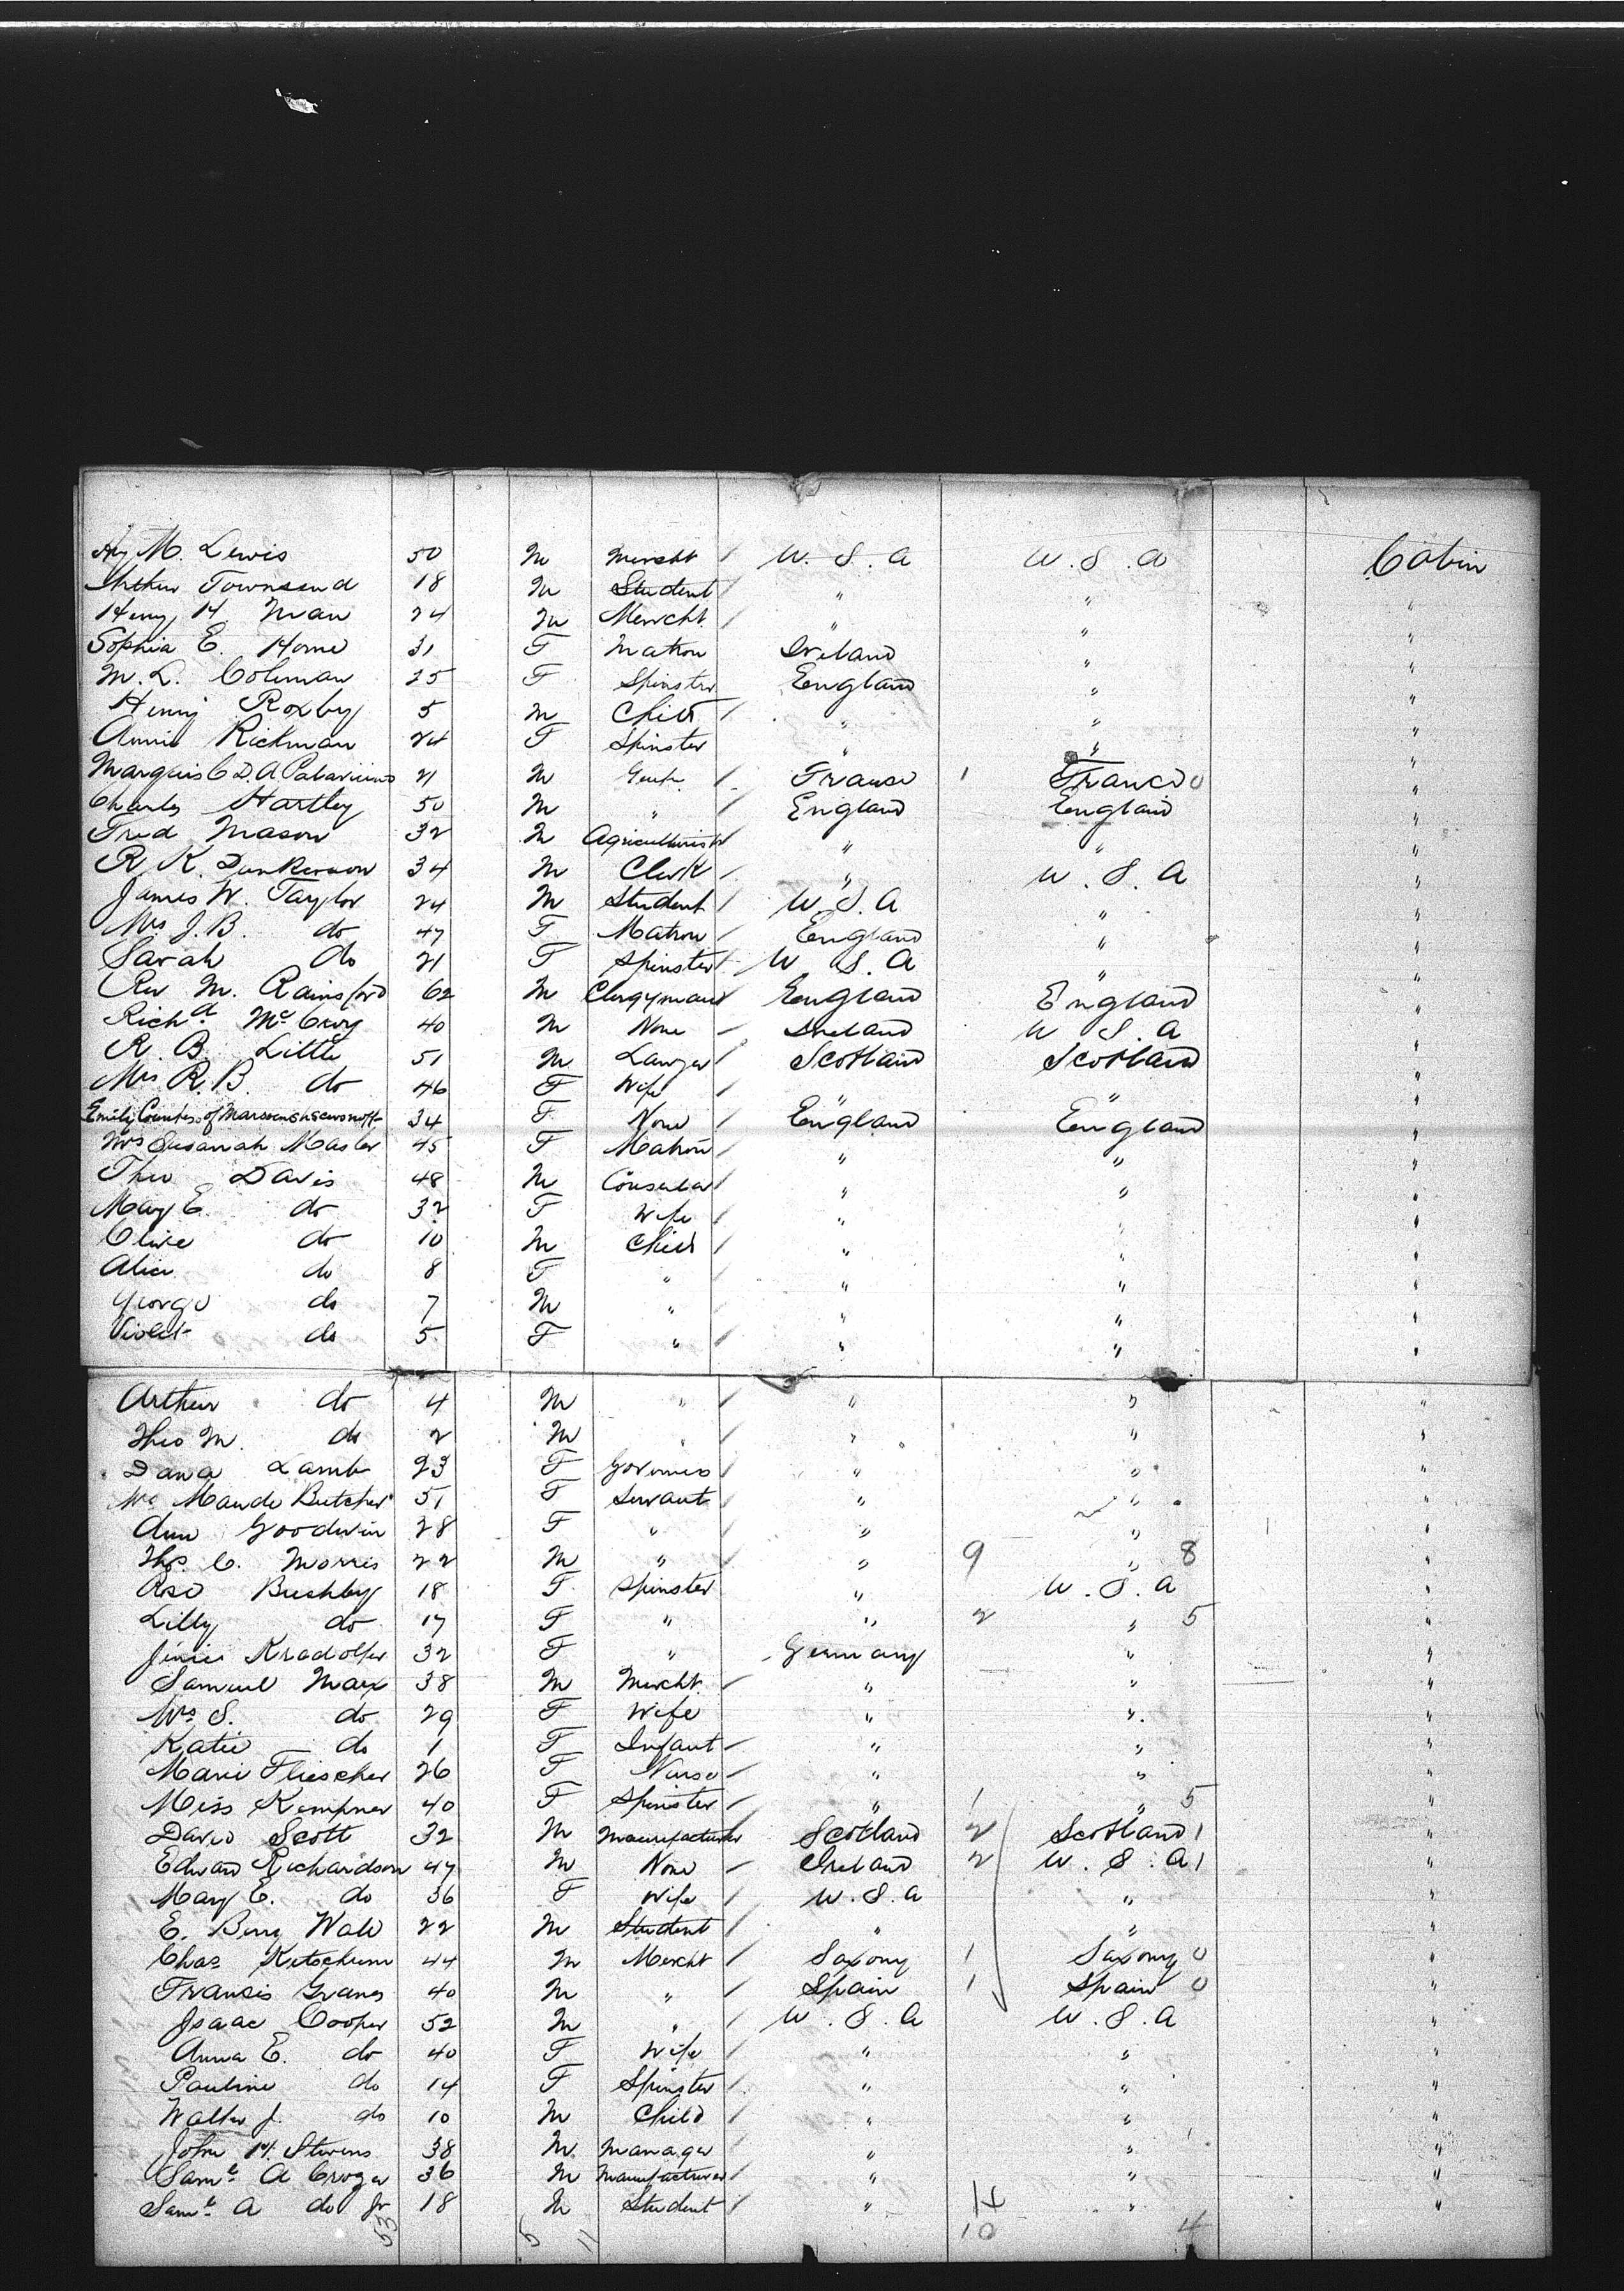 Hy M. Lewis 50 M Mercht U.S.A U.S.A Cabin
Arthur Townsend 18 M Student " " "
Henry H. Man 24 M Mercht " " "
Sophia E. Horne 31 F Matron Ireland " "
M. L. Coleman 25 F Spinster England " "
Henry Roxby 5 M Child " " "
Annie Rickman 24 F Spinster " " "
Marquis C D. A 21 M Gent. France 1 France 0 "
Charles Hartley 50 M " England England "
Fred Mason 32 M Agriculturist " " "
R. K. Dunkerson 34 M Clerk " U.S.A "
James W. Taylor 24 M Student U.S.A " "
Mrs J. B. do 47 F Matron England " "
Sarah do 21 F Spinster U S.A " "
Rev M. Rainsford 62 M Clergyman England England "
Richd Mc 40 M None Ireland U S.A "
R. B. Little 51 M Lawyer Scotland Scotland "
Mrs R. B. do 46 F Wife " " "
Emily Countess of 34 F None England England "
Mrs Susannah Master 45 F Matron " " "
Theo Davis 48 M " " "
Mary E. do 32 F Wife " " "
Clive do 10 M Child " " "
Alice do 8 F " " " "
George do 7 M " " " "
Violet do 5 F " " " "
Arthur do 4 M " " " "
Theo M. do 2 M " " " "
Dana Lamb 23 F Governess " " "
Mrs Maude Butcher 51 F Servant " " "
Ann Goodwin 28 F " " " "
Thos. C. Morris 22 M " " 9 " 8 "
Rose Bushby 18 F Spinster " U.S.A "
Lilly do 17 F " " 2 " 5 "
Kradolfer 32 F " Germany " "
Samuel Marx 38 M Mercht. " " "
Mrs S. do 29 F Wife " " "
Katie do 1 F Infant " " "
Marie Fliescher 26 F Nurse " " "
Miss Kempner 40 F Spinster " 1 " 5 "
David Scott 32 M Manufacturer Scotland 2 Scotland 1 "
Edward Richardson 47 M None Ireland 2 U.S.A 1 "
Mary E. do 36 F Wife U.S.A " "
E. Berry Wall 22 M Student " " "
Chas Ketschum 44 M Mercht Saxony 1 Saxony 0 "
Francis Granes 40 M " Spain 1 Spain 0 "
Isaac Cooper 52 M " U.S.A U.S.A "
Anna E. do 40 F Wife " " "
Pauline do 14 F Spinster " " "
Walter J. do 10 M Child " " "
John H. Stevens 38 M. Manager " " "
Saml A Crozer 36 M Manufacturer " " "
Saml A do Jr 18 M Student " 14 " "
53 5 11 10 4